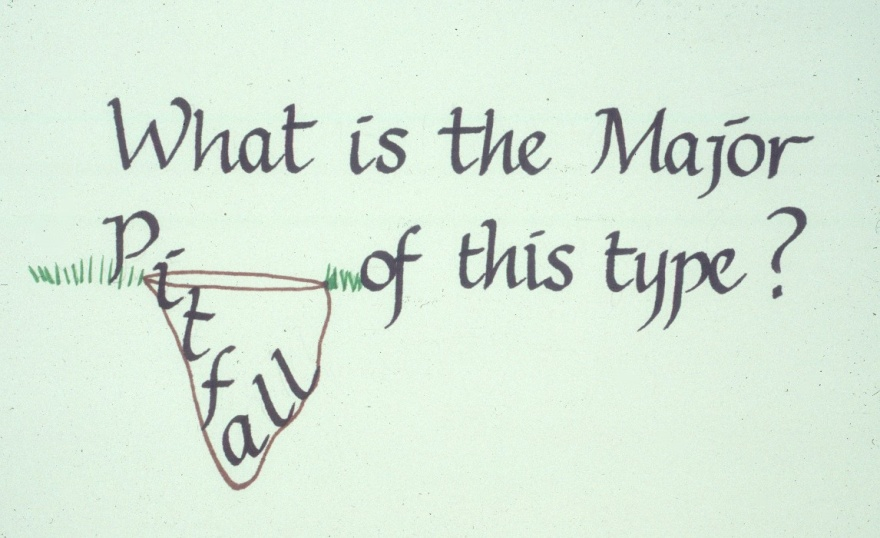 What is the Major
Pitfall of this type?